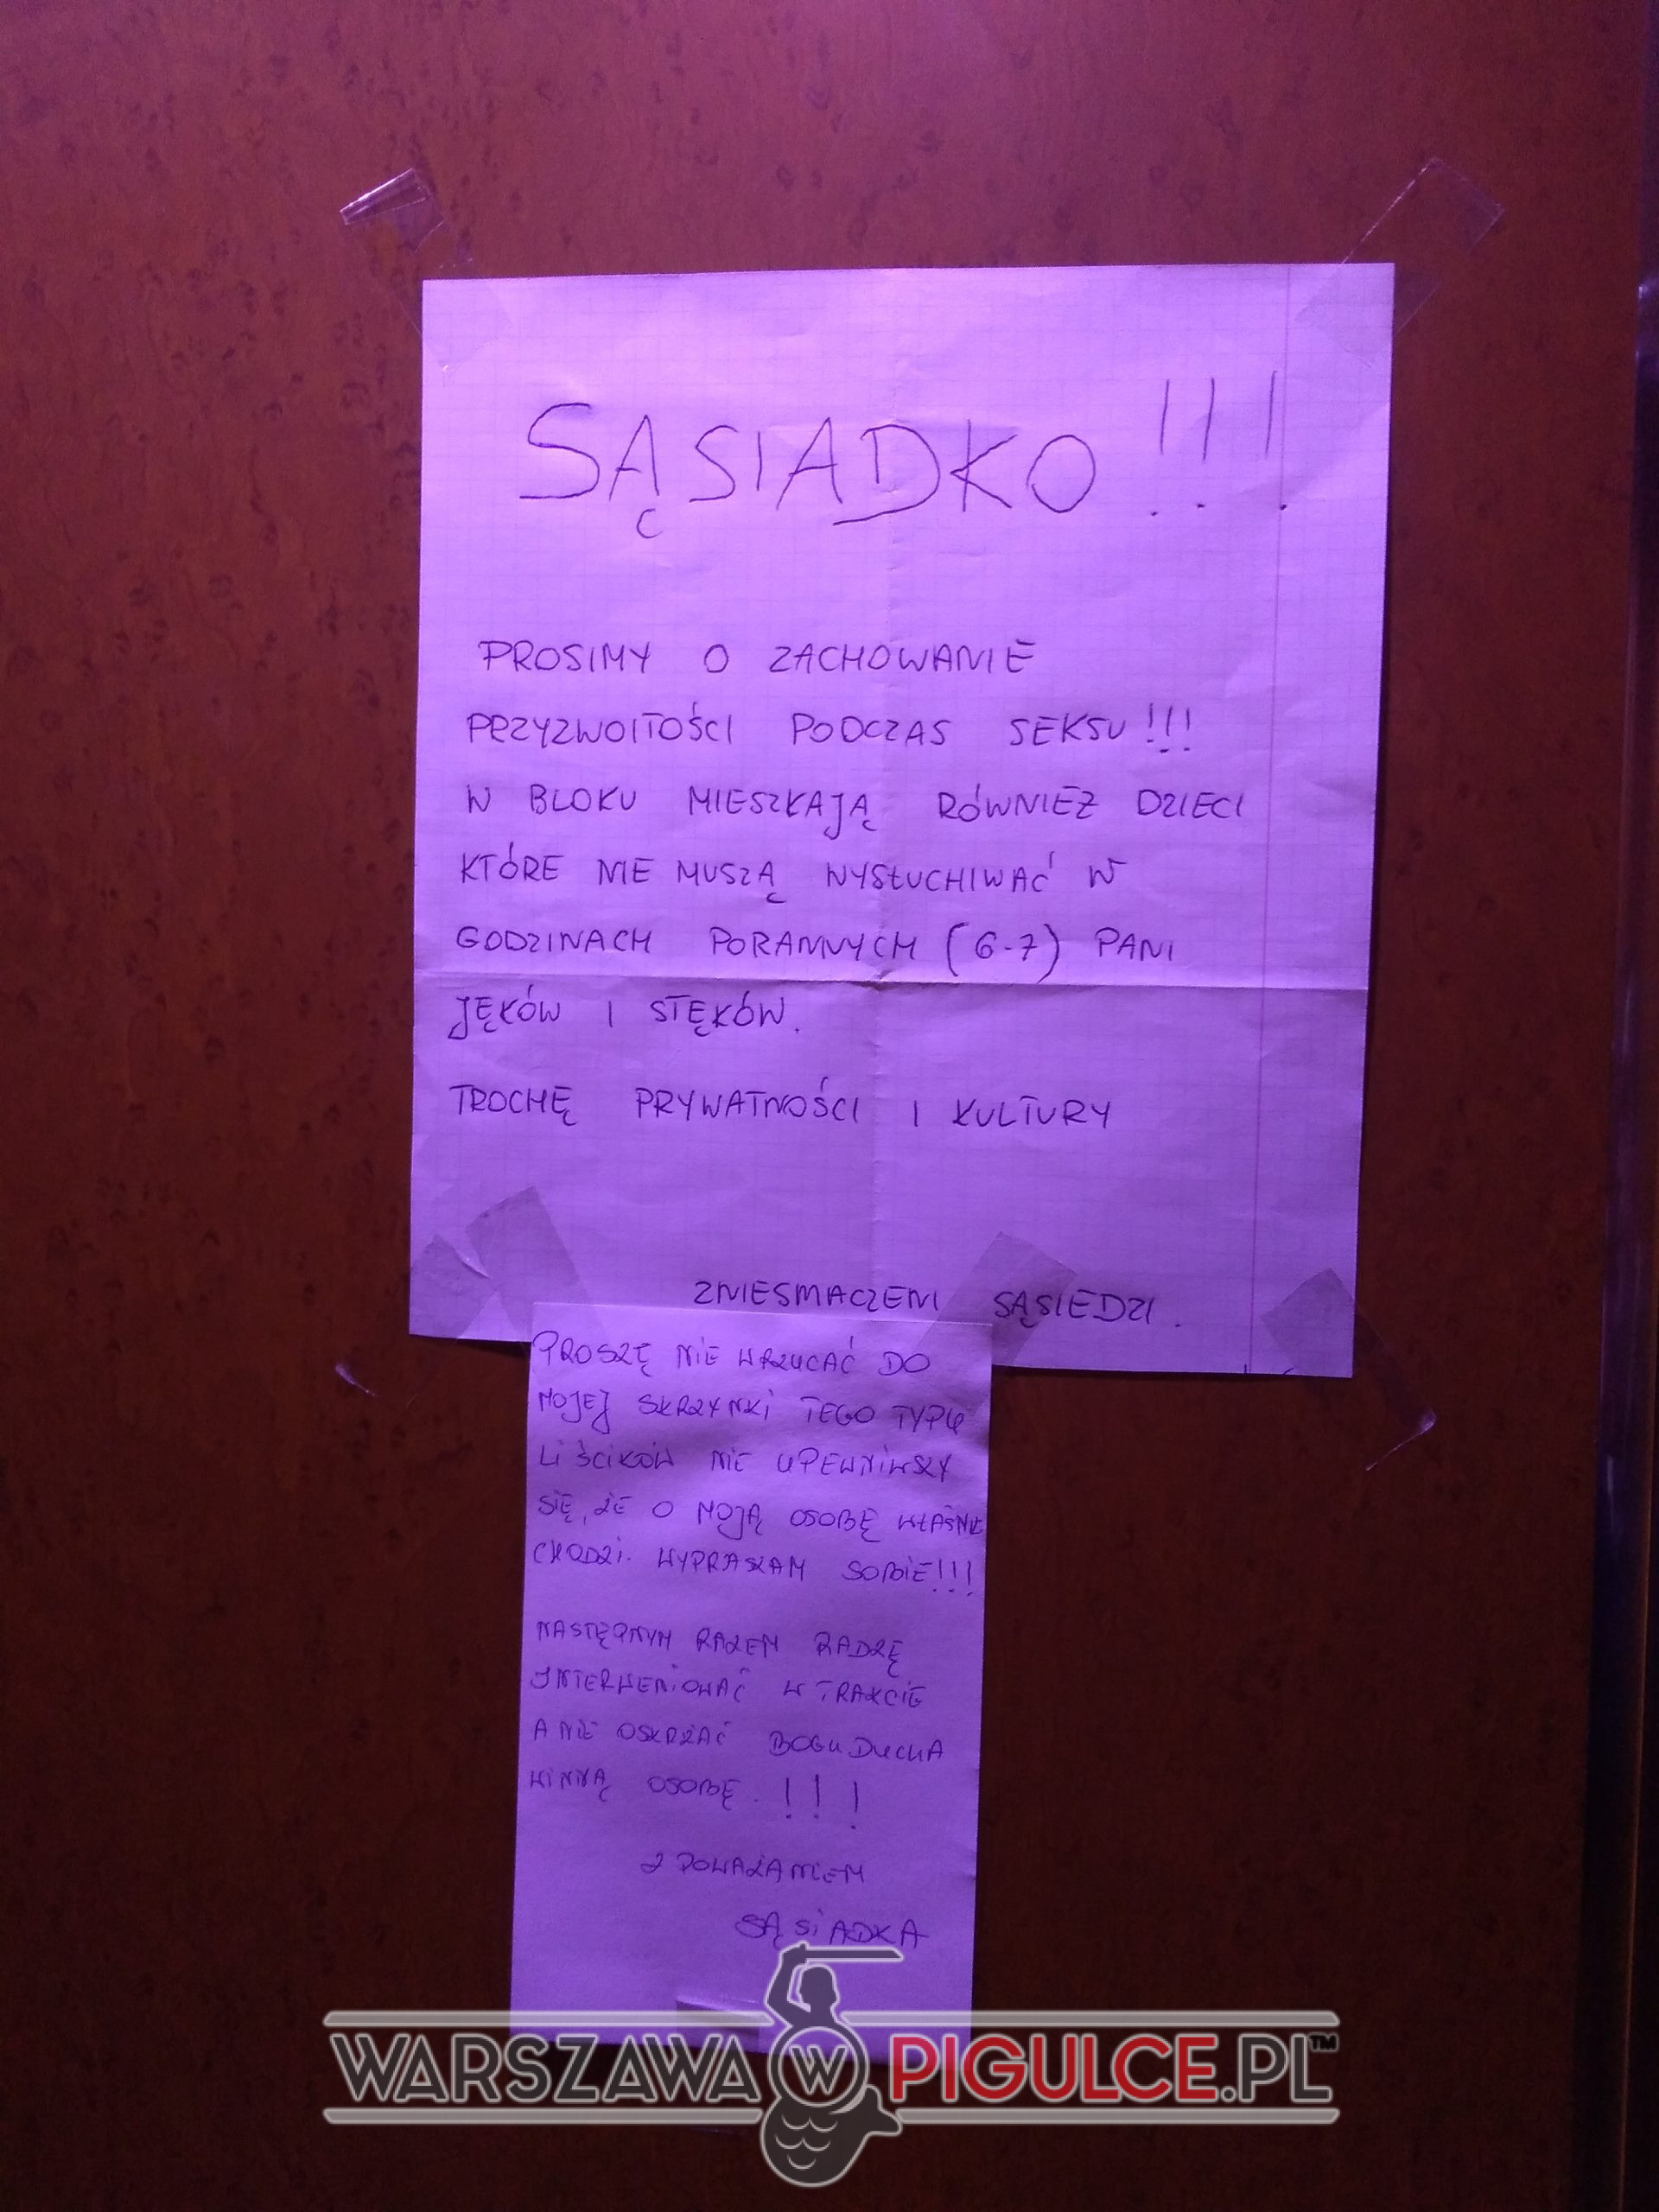 SĄSIADKO!!!
PROSIMY O ZACHOWANIE
PRZYZWOITOŚCI PODCZAS SEKSU!!!
W BLOKU MIESZKAJĄ RÓWNIEŻ DZIECI
KTÓRE NIE MUSZĄ WYSŁUCHIWAĆ W
GODZINACH PORANNYCH (6-7) PANI
JĘKÓW I STĘKÓW.
TROCHĘ PRYWATNOŚCI I KULTURY
ZNIESMACZENI SĄSIEDZI.
PROSZĘ NIE WRZUCAĆ DO
MOJEJ SKRZYNKI TEGO TYPU
LIŚCIKÓW NIE UPEWNIWSZY
SIĘ, ŻE O MOJĄ OSOBĘ WŁAŚNIE
CHODZI. WYPRASZAM SOBIE!!!
NASTĘPNYM RAZEM RADZĘ
INTERWENIOWAĆ W TRAKCIE
A NIE OSKRŻAĆ BOGU DUCHA
WINNĄ OSOBĘ.!!!
Z POWAŻANIEM
SĄSIADKA
WARSZAWA W PIGULCE.PL™